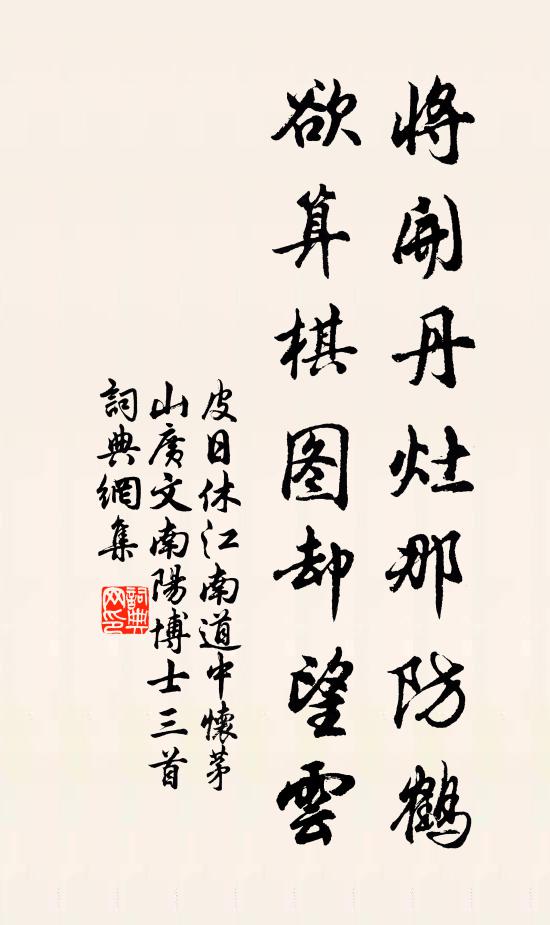 將開丹灶那防鶴
欲算棋图却望雲
皮日休江南道中懷茅
山廣文南陽博士三首
詞典網集
詞典
网印